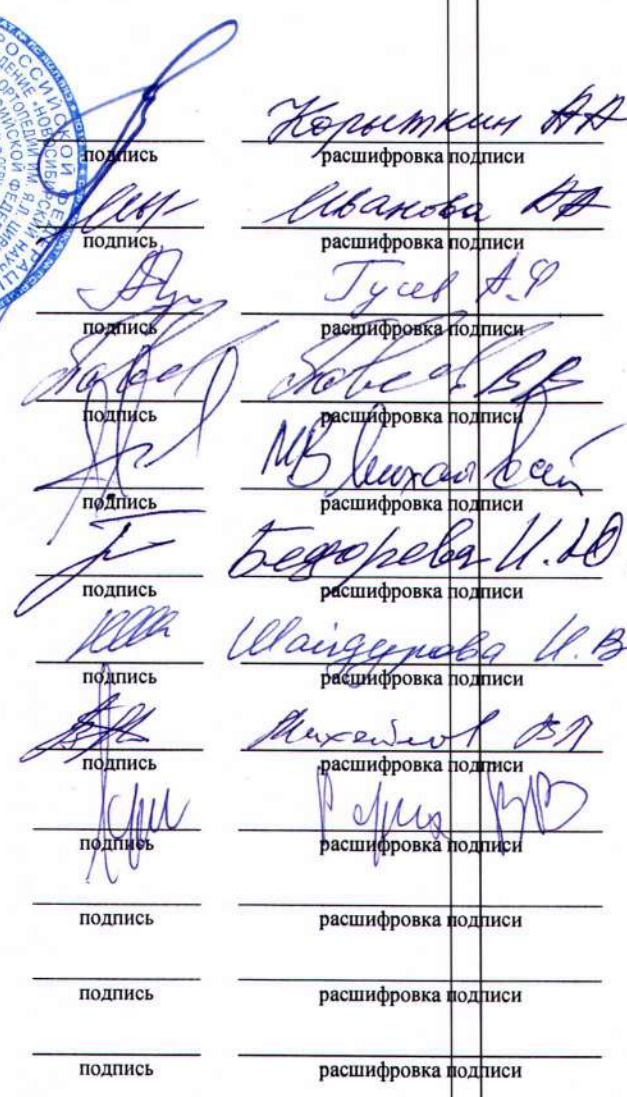 РОССИЙСКОЙ ФЕДЕРАЦИ
Корыткин АА
подпись расшифровка подписи
Иванова АА
подпись расшифровка подписи
Гусев А.Ф
подпись расшифровка подписи
ВВ
подпись расшифровка подписи
МВ Михайловский
подпись расшифровка подписи
Бедорева И.Ю
подпись расшифровка подписи
Шайдурова И.В
подпись расшифровка подписи
Михайлов ВП
подпись расшифровка подписи
Рерих ВВ
подпись расшифровка подписи
подпись расшифровка подписи
подпись расшифровка подписи
подпись расшифровка подписи